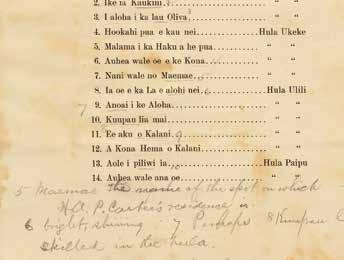 2. Ike ia Kaukini.......... " "
3. I aloha i ka lau Oliva.......... " "
4. Hookahi pua e kau nei..........Hula Ukeke
5. Malama i ka Haku a he pua.......... " "
6. Auhea wale oe e ke Kona.......... " "
7. Nani wale no Maemae.......... " "
8. Ia oe e ka La e alohi nei..........Hula Ulili
9. Anoai i ke Aloha.......... " "
10. Kuupau lia mai.......... " "
11. Ee aku o Kalani.......... " "
12. A Kona Hema o Kalani.......... " "
13. Aole i piliwi ia..........Hula Paipu
14. Auhea wale ana oe.......... " "
5 Maemae the name of the spot on which
H. A. P. Carter's residence is.
6 bright, shining 7 Perhaps 8 Kuupau
skilled in the hula.